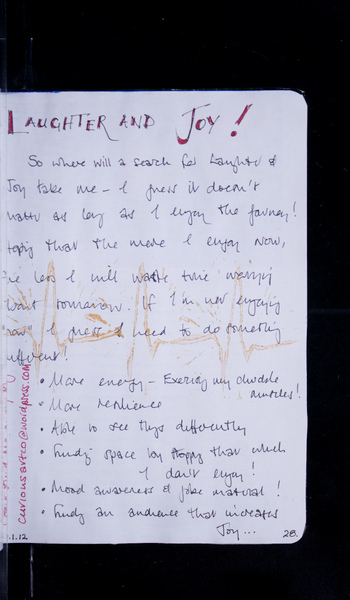 LAUGHTER AND JOY!
So where will a search for Laughter &
Joy take me – I guess it doesn't
matter as long as I enjoy the journey!
that the more I enjoy now,
the less I will waste time worrying
about tomorrow. If I'm not enjoying
now I guess I need to do something
different!
• More energy – Exercising my chuckle
muscles!
• More resilience
• Able to see things differently
• Finding space by stopping that which
I don't enjoy!
• Mood awareness & joke material!
• Finding an audience that increases
Joy...
1.1.12
28.
curiousartco@wordpress.com